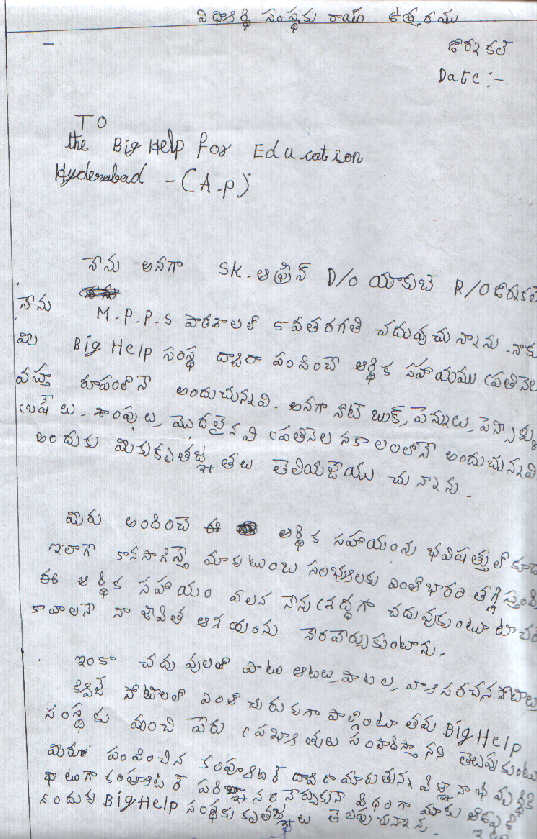 పితాకిర్థి సంస్థకు రాయు ఉత్తరము
డోర్నకల్
Date:-
TO
the Big Help for Education
Hyderabad -(A.P)
నేను అనగా SK.ఆఫ్రీన్ D/o యాకుబ్ R/o డోర్నకల్
నేను M.P.P.S పాఠశాలలో 5వతరగతి చదువుచున్నాను. నాకు
మి Big Help సంస్థ ద్వారా పంపించే ఆర్థిక సహాయము ప్రతినెల
వస్తు రూపంలోనే అందుచున్నవి. అనగా నోట్ బుక్స్, పెన్నులు, పెన్సిళ్ళు
బ్రష్ లు. శాంపులు, మొదలైనవి ప్రతినెల సకాలంలోనే అందుచున్నవి
అందుకు మికుకృతజ్ఞతలు తెలియజేయు చున్నాను.
మీరు అందించే ఈ ఆర్థిక సహాయంను భవిషత్తులో కూడ
ఇలాగే కొనసాగిస్తే మాకుటుంబ సభ్యులకు ఎంతోభారం తగ్గిస్తుంది
ఈ ఆర్థిక సహాయం వలన నేను శ్రద్ధగా చదువుకుంటూ టీచర్
కావాలనే నా జీవిత ఆశయంను నెరవేర్చుకుంటాను.
ఇంకా చదువులతో పాటు ఆటలు, పాటల, వ్యాసరచన పోటీలు,
క్విజ్ పోటీలలో ఎంతో చురుకుగా పాల్గొంటూ తమ Big Help
సంస్థకు మంచి పేరు ప్రఖ్యాతులు సంపాదిస్తానని తెలుపుకుంటు
మీరు పంపించిన కంప్యూటర్ ద్వారా మాకుతున్న విజ్ఞానాభివృద్ధికి
కంప్యూటర్ పరిజ్ఞానం నేర్చుకునే విధంగా మాకు
కందుకు Big Help సంస్థకు కృతజ్ఞతలు తెలుపుచున్నాను